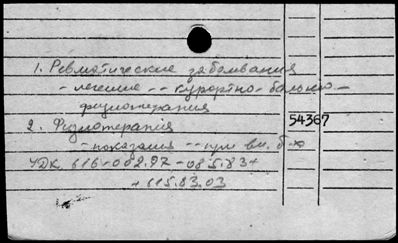 1. Ревматические заболевания
- лечение -- курортно-бальнео-
физиотерапия
54367
2. Физиотерапия
- показания -- при вн. б-х
УДК. 616-002.77-085.83+
+615.83.03